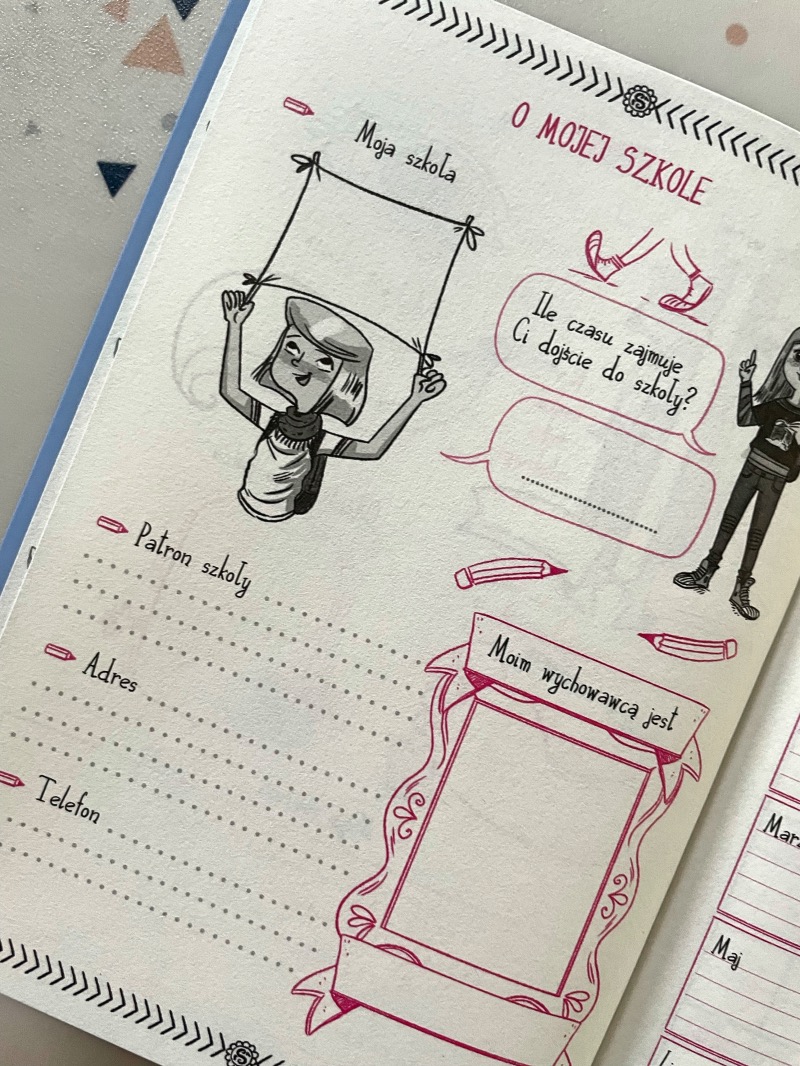 O MOJEJ SZKOLE
Moja szkoła
Ile czasu zajmuje
Ci dojście do szkoły?
Patron szkoły
Adres
Telefon
Moim wychowawcą jest
Maj